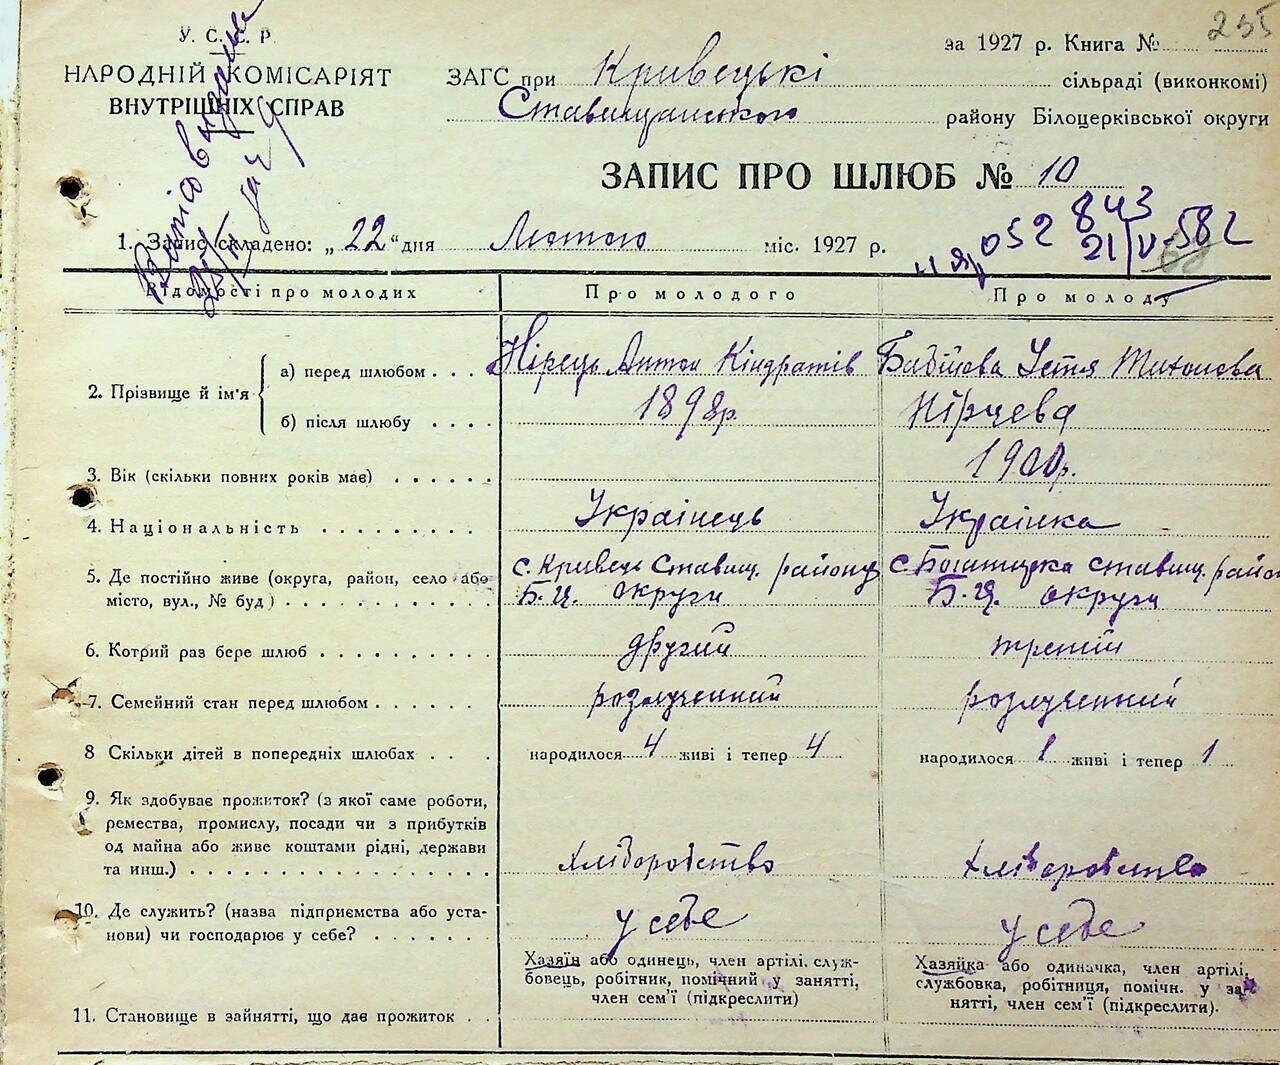 235
У. С. С. Р.
НАРОДНІЙ КОМІСАРІЯТ
ВНУТРІШНІХ СПРАВ
за 1927 р. Книга №
ЗАГС при Кривецькі сільраді (виконкомі)
Ставищанського району Білоцерківської округи
ЗАПИС ПРО ШЛЮБ № 10
1. Запис складено: „22“ дня Лютого міс. 1927 р.
052 843
21/V-582
68
Відомості про молодих
Про молодого
Про молоду
2. Прізвище й ім'я
а) перед шлюбом . . . Нірець Антон Кіндратів
Бабійова Устя Тихонова
б) після шлюбу . . . .
1898р.
Нірцева
1900р.
3. Вік (скільки повних років має) . . . . . .
4. Національність . . . . . . . . Українець
Українка
5. Де постійно живе (округа, район, село або
місто, вул., № буд) . . . . . . . . . . .
с. Кривець Ставищ. району
Б.-Ц. округи
с. Богатирка Ставищ. район
Б.-Ц. округи
6. Котрий раз бере шлюб . . . . . . . . . . другий
третій
7. Семейний стан перед шлюбом . . . . . . розлученний
розлученний
8 Скільки дітей в попередніх шлюбах . . .
народилося 4 живі і тепер 4
народилося 1 живі і тепер 1
9. Як здобуває прожиток? (з якої саме роботи,
ремества, промислу, посади чи з прибутків
од майна або живе коштами рідні, держави
та инш.) . . . . . . . . . . . . . . . .
Хліборобство
Хліборобство
10. Де служить? (назва підприємства або уста-
нови) чи господарює у себе? . . . . . . .
у себе
у себе
11. Становище в зайнятті, що дає прожиток . .
Хазяїн або одинець, член артілі, служ-
бовець, робітник, помічний у занятті,
член сем'ї (підкреслити)
Хазяйка або одиначка, член артілі,
службовка, робітниця, помічн. у за-
нятті, член сем'ї (підкреслити).